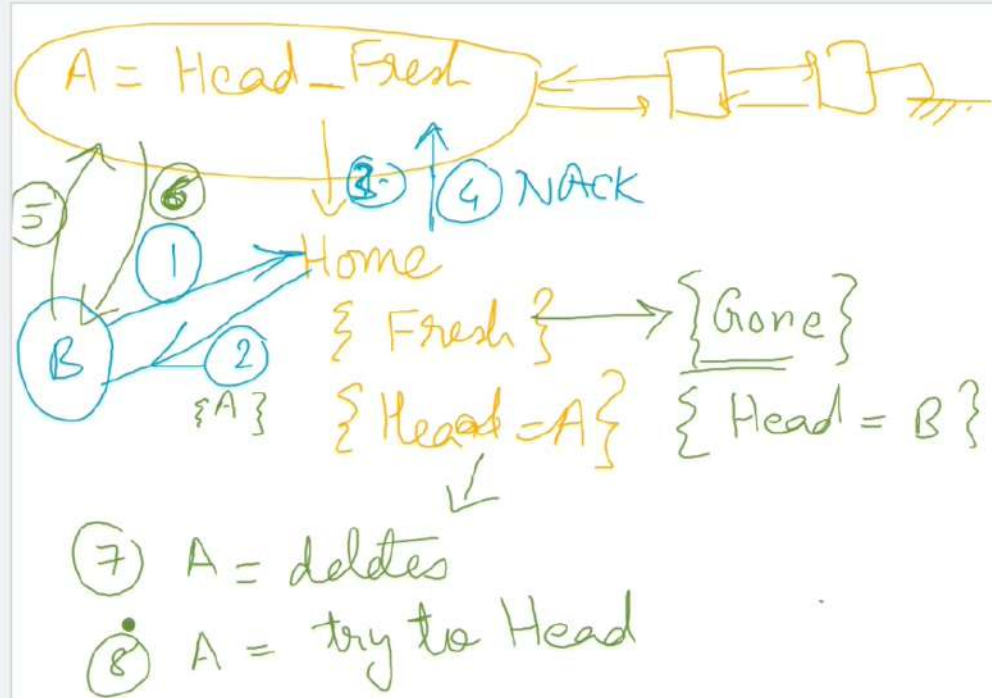 A = Head_Fresh
3 4 NACK
5 6
1
Home
B
2
{A}
{ Fresh } {Gone}
{Head = A} { Head = B }
7 A = deletes
8 A = try to Head